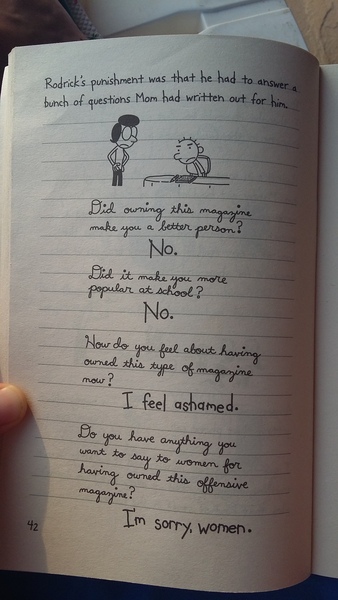 Rodrick's punishment was that he had to answer a
bunch of questions Mom had written out for him.
Did owning this magazine
make you a better person?
No.
Did it make you more
popular at school?
No.
How do you feel about having
owned this type of magazine
now?
I feel ashamed.
Do you have anything you
want to say to women for
having owned this offensive
magazine?
I'm sorry, women.
42